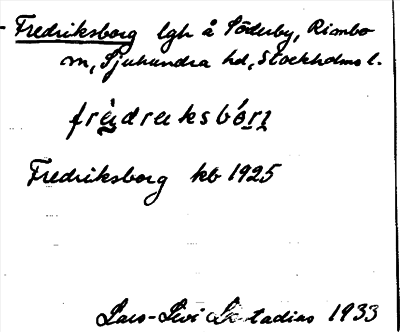 Fredriksborg lgh å Söderby, Rimbo
sn, Sjuhundra hd, Stockholms l.
Fredriksborg kb 1925
Lars-Levi Læstadius 1933